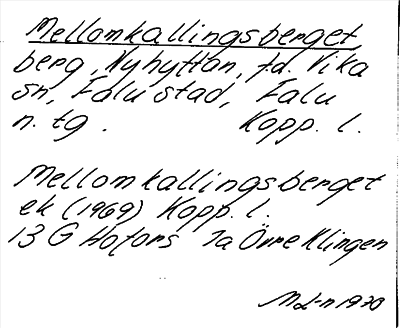 Mellomkallingsberget
berg, Nyhyttan, f.d. Vika
sn, Falu stad, Falu
n. tg. Kopp. l.
Mellomkallingsberget
ek (1969) Kopp. l.
13 G Hofors 7a Övre Klingen
1970